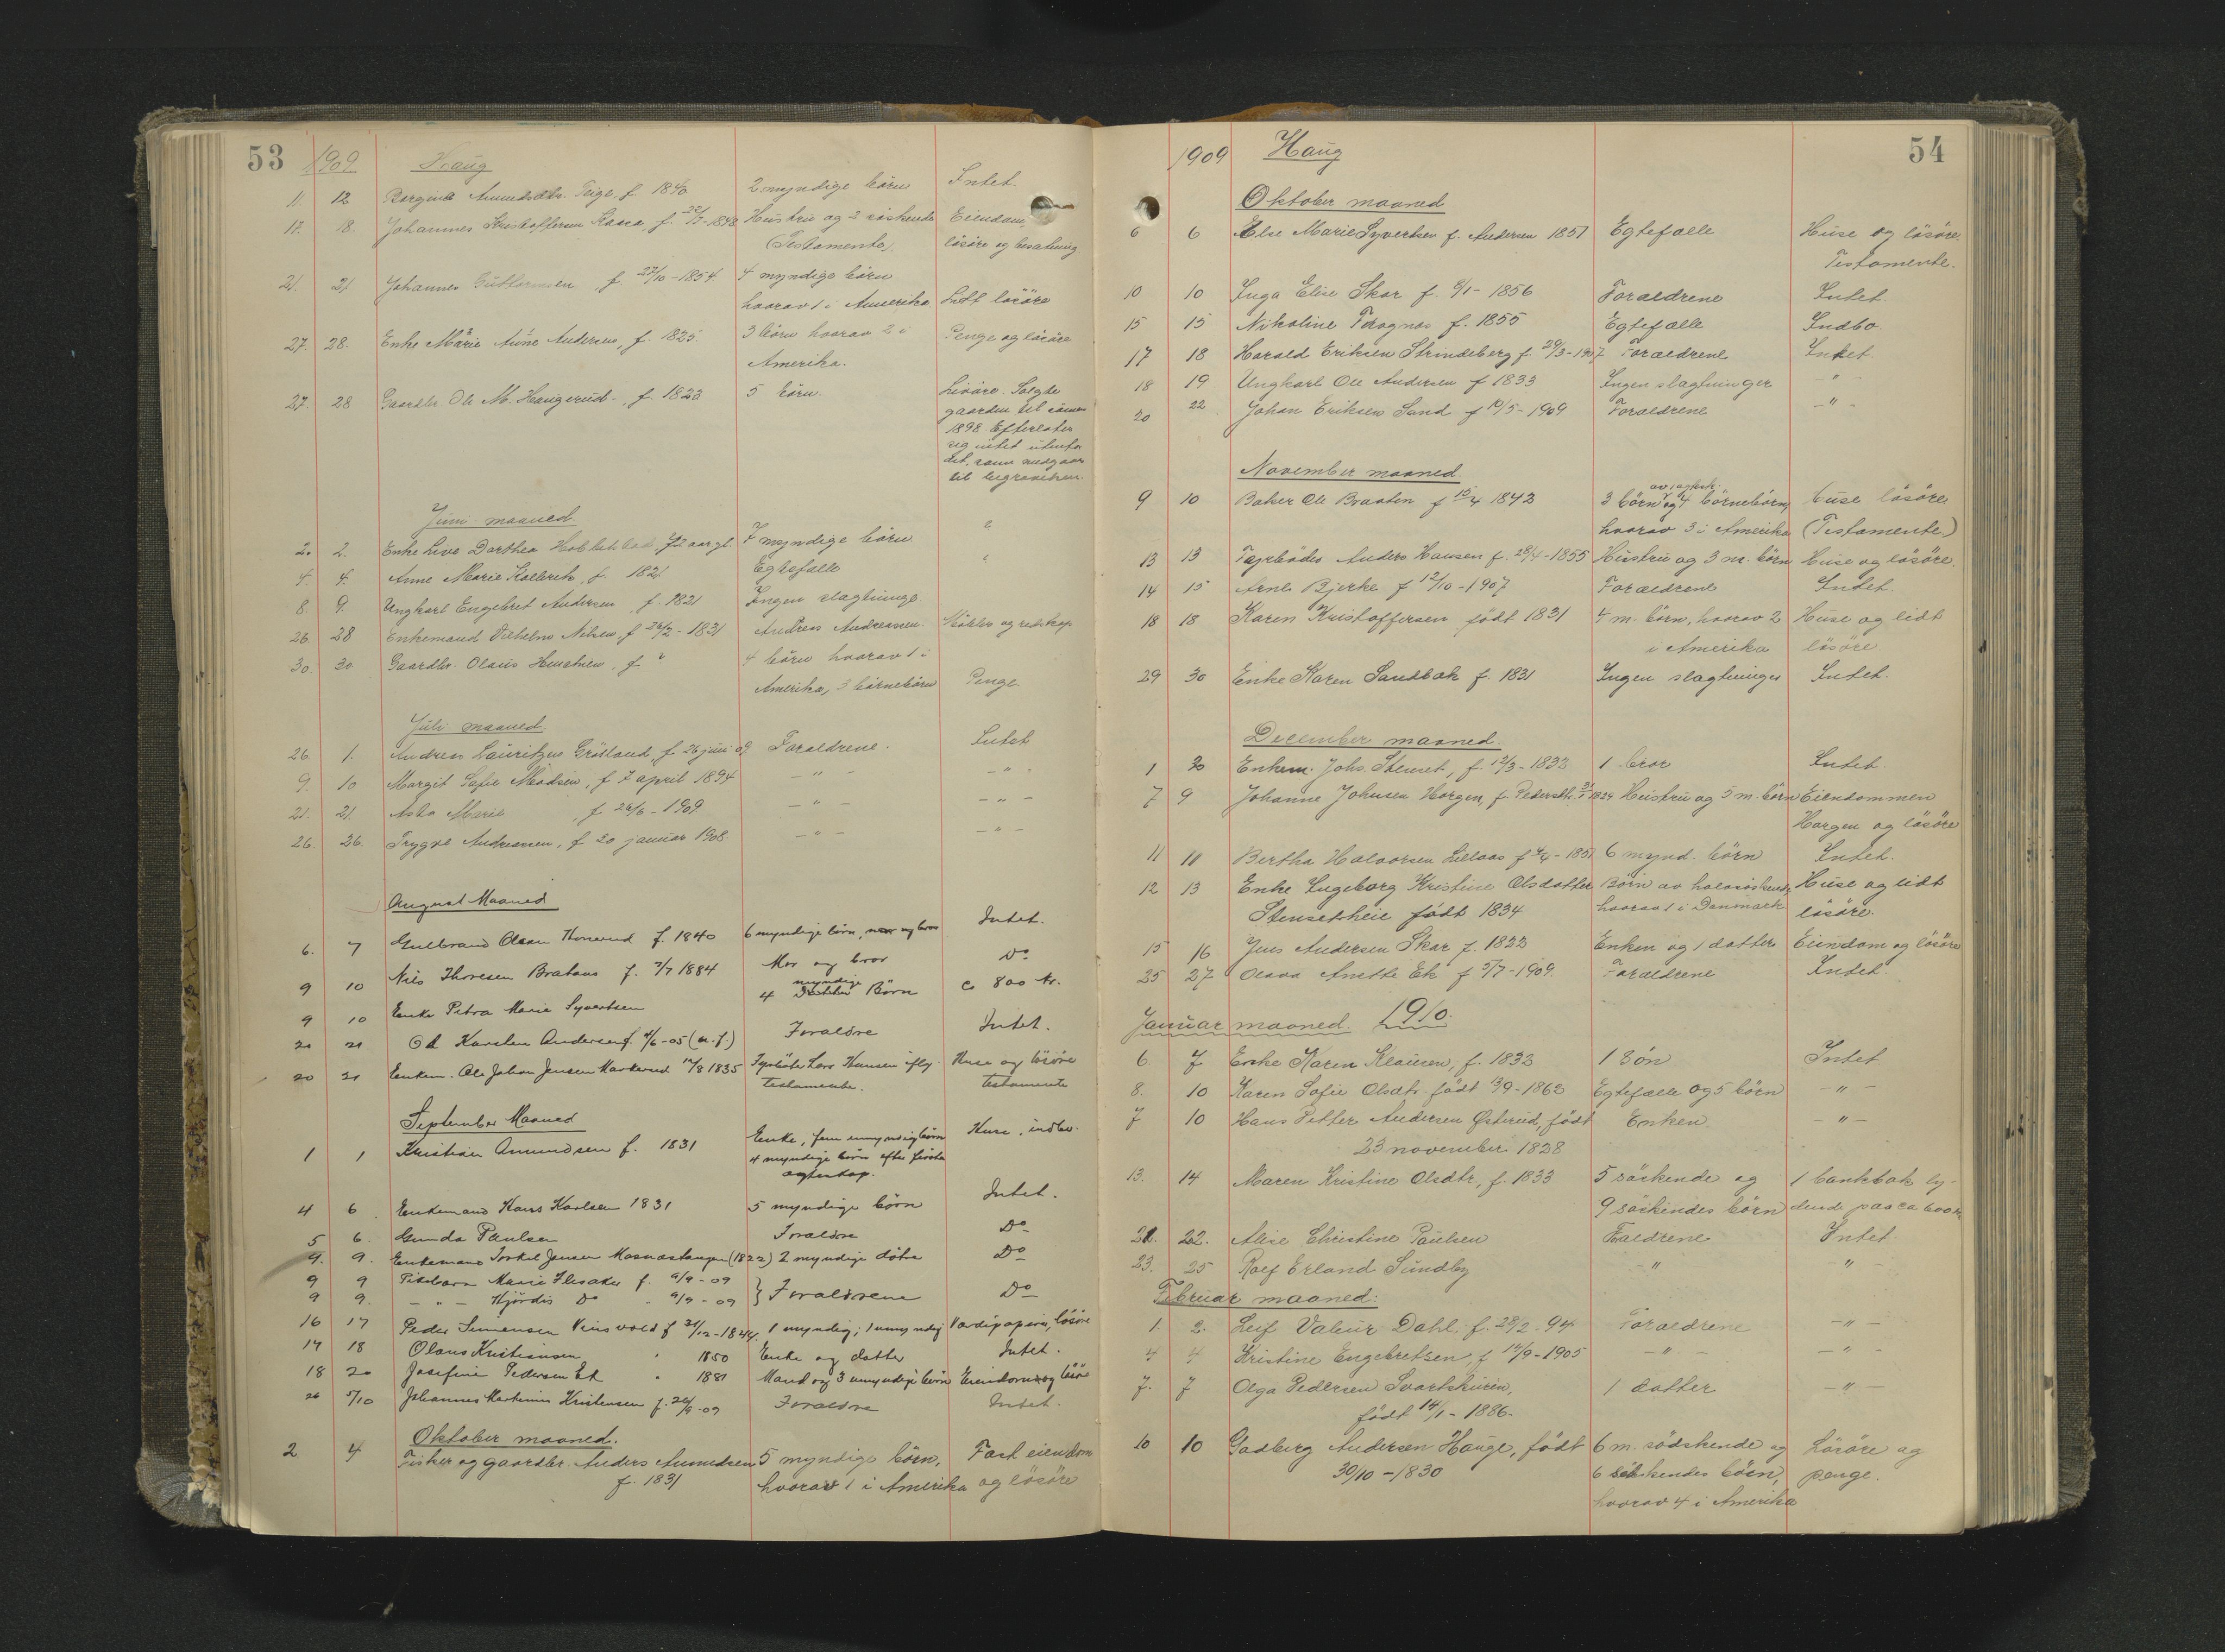 53 1909 Haug
11. 12 Amundsdtr. Teige, f. 1840 2 myndige börn Intet.
17. 18. Johannes Kristoffersen f. -1848 Hustru og 2 söskende Eiendom,
(Testamente). lösöre og besætning.
21. 21 Johannes Guttormsen, f. 27/10-1854. 4 myndige börn
hvorav 1 i Amerika Litt lösöre
27. 28. Enke Marie Aune Andersen, f. 1825. 3 börn hvorav 2 i Penge og lösöre
Amerika.
27. 28 Gaardbr. Ole M. Haugerud, f. 1823 5 börn. Lösöre. Solgte
gaarden til sönnen
1898. Efterlater
sig intet utenfor
det, som medgaar
til begravelsen.
Juni maaned
2. 2. Enke Live Dorthea 72 aar gl. 7 myndige börn "
4. 4. Anne Marie f. 1821 Egtefælle "
8. 9. Ungkarl Engebret Andersen, f. 1821 Ingen slagtninge.
26. 28 Enkemand Vilhelm Nilsen, f. 26/2-1831 Andreas Andreassen og redskap
30. 30 Gaardbr. Olaus f. ? 4 börn hvorav 1 i
Amerika, 3 börnebörn Penge
Juli maaned
26. 1. Andreas Lauritzen f. 26 juni 09. Foreldrene. Intet
9. 10 Margit Sofie Madsen, f. 7 april 1894 - " - - " -
21. 21. Asta Marie , f. 26/6-1909 - " - - " -
26. 26. Trygve Andreassen, f. 20 januar 1908 - " - - " -
August Maaned
6. 7 Gulbrand Olsen f. 1840 6 myndige börn, mor og bror Intet.
9 10 Nils Thoresen Braташ f. 7/7 1884 Mor og bror Do
9 10 Enke Petra Marie Syvertsen 4 myndige Börn c 800 kr.
20 21 Karsten Andersen f. 4/6-05 (u.f.) Foraldre Intet.
20 21 Enkem. Ole Johan Jensen 12/8 1835 Fyrböter Lars Hansen iflg. Huse og lösöre
testamente. testamente
September Maaned
1 1 Kristian Amundsen f. 1831 Enke, fem umyndige börn Huse, indbo
4 myndige börn efter første
egteskap.
4 6. Enkemand Hans Karlsen 1831 5 myndige börn Intet.
5 6. Gunda Paulsen Foraldre Do
9. 9. Enkemand Torkel Jensen (1822) 2 myndige dötre Do
9 9 Pikebarn Marie Flesaker f. 9/9-09 } Foraldrene Do
9 9. - " - Hjördis Do " 9/9-09
16 17 Peder Simensen f. 31/12-1844. 1 myndig; 1 umyndig Værdipapirer, lösöre
17 18 Olaus Kristiansen " 1850 Enke og datter Intet.
18 20 Josefine Pedersen Ek " 1881 Mand og 3 umyndige börn Eiendom og lösöre
26 5/10 Johannes Martinius Kristensen f. 26/9-09 Foraldre Intet.
Oktober maaned.
2 4 Fisker og gaardbr. Anders Amundsen 5 myndige börn, Fast eiendom
f. 1831 hvorav 1 i Amerika og lösöre
1909 Haug 54
Oktober maaned
6 6 Else Marie Syvertsen f. Andersen 1851 Egtefælle Huse og lösöre.
Testamente.
10 10 Inga Elise Skar f. 6/1-1856 Foraldrene Intet.
15 15 Nikoline f. 1855 Egtefælle Indbo.
17 18 Harald Eriksen Strindeberg f. 29/3-1907 Foraldrene Intet
18 19 Ungkarl Ole Andersen f 1833 Ingen slagtninger - " -
20 22 Johan Eriksen Sand f 10/5-1909 Foraldrene - " -
November maaned.
9 10 Baker Ole Braaten f 15/4 1842 3 börn og 4 börnebörn Huse lösöre
hvorav 3 i Amerika (Testamente)
13 13 Fyrböder Anders Hansen f. 28/4-1855 Hustru og 3 m. börn Huse og lösöre.
14 15 Arne Bjerke f 12/10-1907 Foraldrene Intet.
18 18 Karen Kristoffersen född 1831 4 m. börn, hvorav 2 Huse og lidt
i Amerika lösöre
29 30 Enke Karen Sandbak f. 1831 Ingen slagtninger Intet.
December maaned.
1 Enkem. Johs. Stenset, f. 12/3-1832 1 bror Intet.
7 9 Johanne Johnsen Horgen, f. Pedersdtr. 1829 Hustru og 5 m. börn Eiendommen
Horgen og lösöre
11 11 Bertha Halvorsen Lillaas f 4/4-1851 6 mynd. börn Intet.
12 13 Enke Ingeborg Kristine Olsdatter Börn av halvsöskende, Huse og lidt
Stensetheie födt 1834 hvorav 1 i Danmark lösöre.
15 16 Jens Andersen Skar f. 1822 Enken og 1 datter Eiendom og lösöre
25 27 Olava Anette Ek f 5/7-1909. Foraldrene Intet
Januar maaned. 1910.
6. 7 Enke Karen Klausen, f. 1832 1 sön Intet
8. 10 Karen Sofie Olsdtr. födt 13/9-1863 Egtefælle og 5 börn - " -
7 10 Hans Petter Andersen Österud, födt Enken - " -
23 november 1828
13. 14 Maren Kristine Olsdtr, f. 1833 5 söskende og 1 bankbok ly-
9 söskendes börn dende paa ca 600 kr
21. 22. Alise Christine Paulsen Foraldrene Intet.
23. 25 Rolf Erland Sundby - " - - " -
Februar maaned:
1. 2. Leif Valeur Dahl, f. 28/2.94 Foraldrene - " -
4 4 Kristine Engebretsen, f 14/9-1905 - " - - " -
7. 7 Olga Pedersen Svartskuren, 1 datter - " -
födt 14/1-1886.
10 10 Gadberg Andersen Hauge, födt 6 m. södskende og Lösöre og
30/10-1830 6 söskendes börn, penge.
hvorav 4 i Amerika